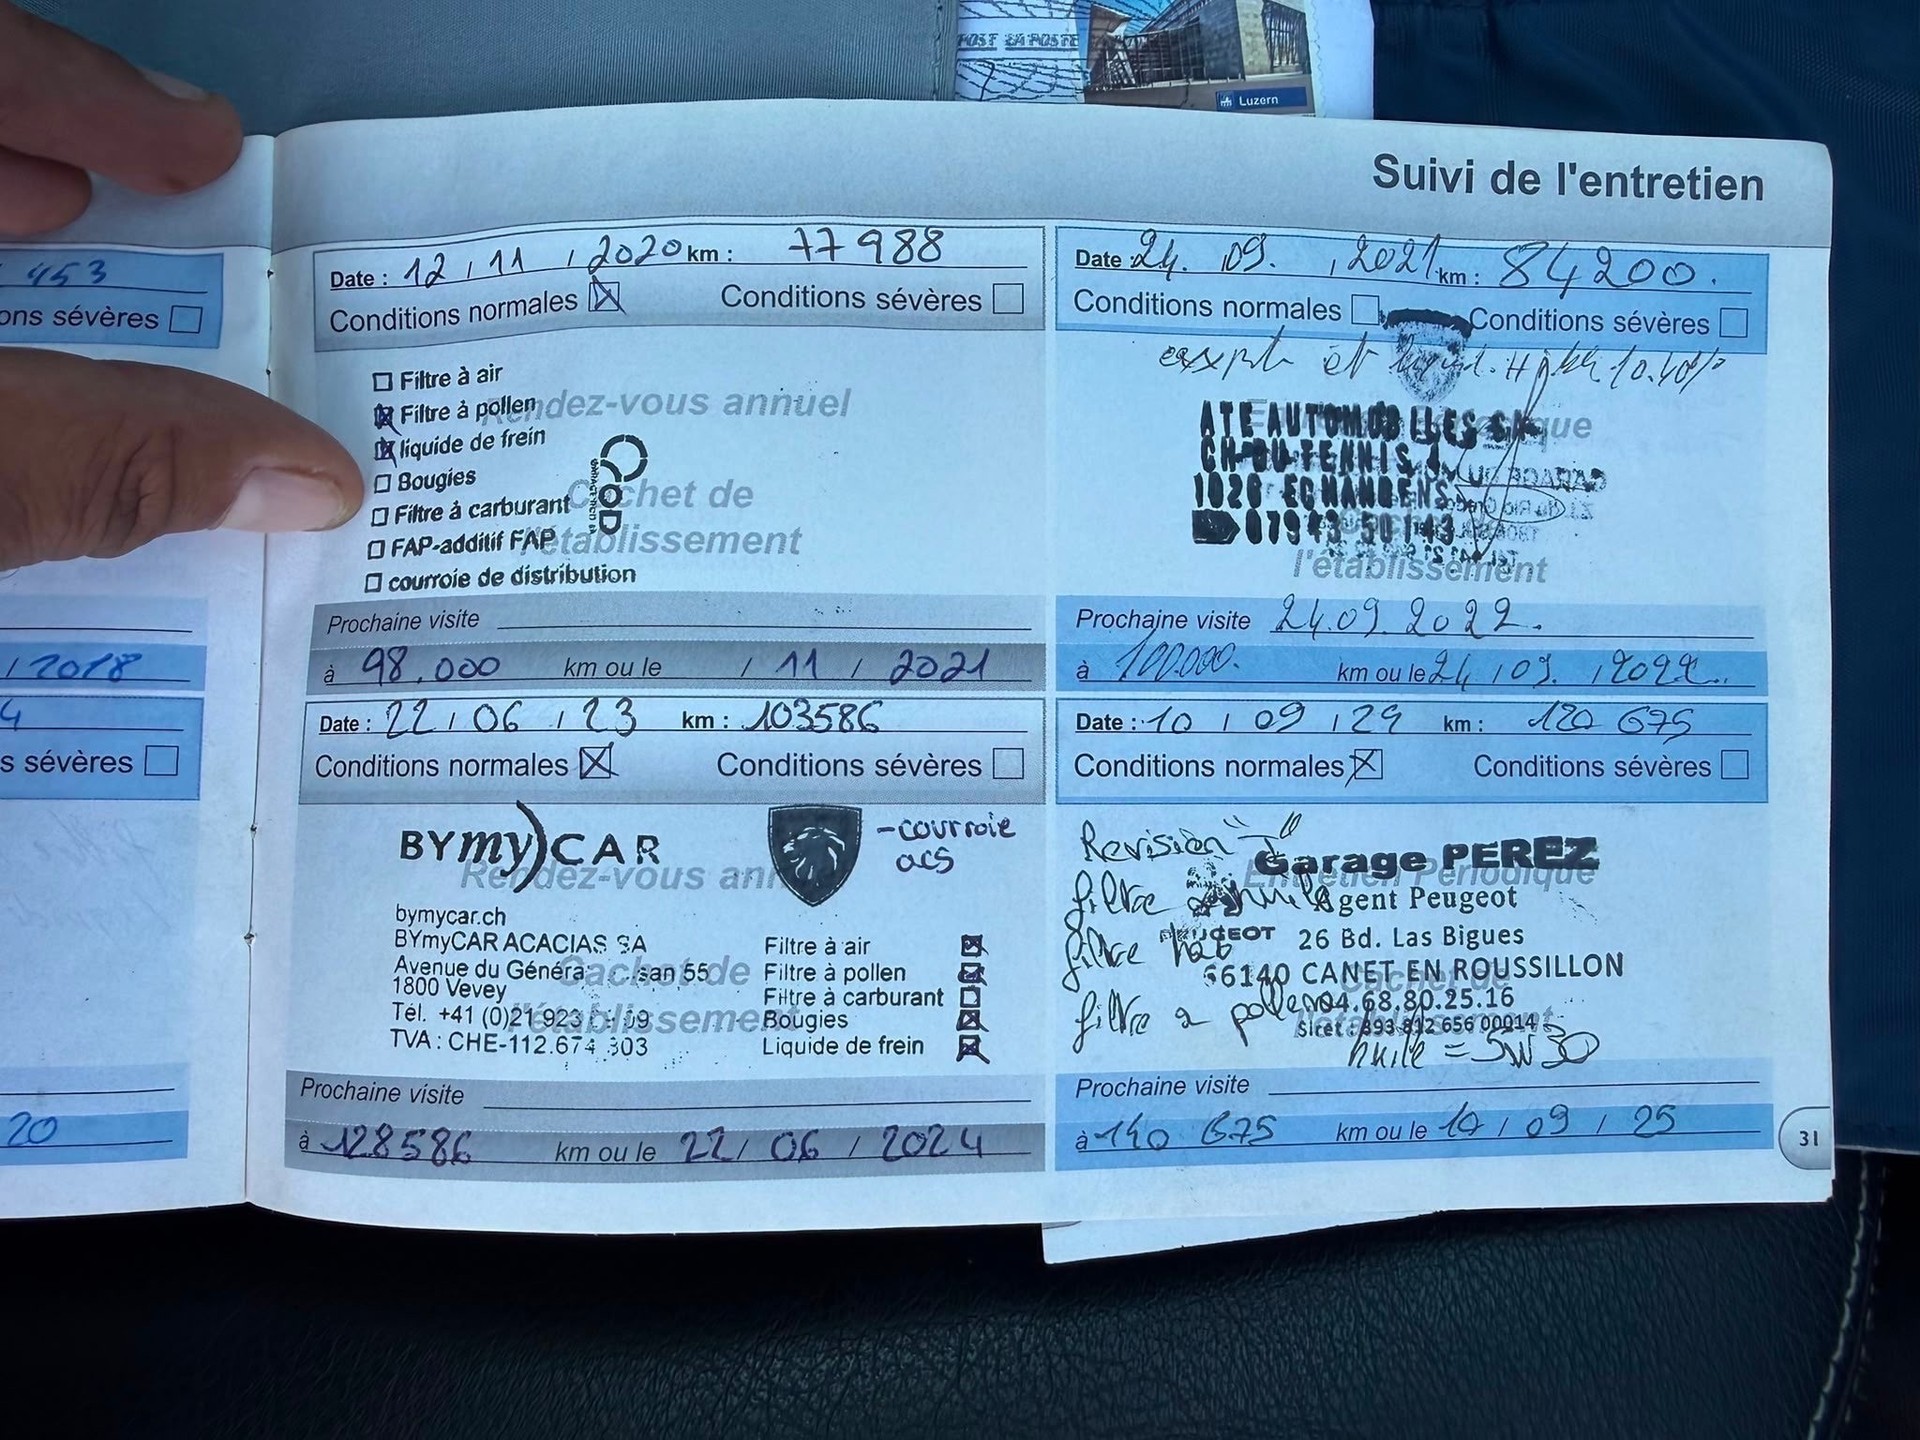 POST LA POSTE
Luzern
Suivi de l'entretien
453
ons sévères
/ 2018
4
s sévères
20
Date : 12 / 11 / 2020 km : 77988
Conditions normales Conditions sévères
Filtre à air
Filtre à pollen
liquide de frein
Bougies
Filtre à carburant
FAP-additif FAP
courroie de distribution
Rendez-vous annuel
Cachet de
l'établissement
Prochaine visite
à 98.000 km ou le / 11 / 2021
Date : 24. 09. , 2021 km : 84200.
Conditions normales Conditions sévères
et 10.40%
ATE AUTOMOBILES SA
CH DU TENNIS 4
1026 ECHANDENS
07943 50143
l'établissement
Prochaine visite 24.09.2022.
à 100.000. km ou le 24 / 09. / 2022.
Date : 22 / 06 / 23 km : 103586
Conditions normales Conditions sévères
BYmy)CAR
- courroie
acs
Rendez-vous ann
bymycar.ch
BYmyCAR ACACIAS SA
Avenue du Généra san 55
1800 Vevey
Tél. +41 (0)21 923 09
TVA : CHE-112.674 303
Cachet de
l'établissement
Filtre à air
Filtre à pollen
Filtre à carburant
Bougies
Liquide de frein
Prochaine visite
à 128586 km ou le 22 / 06 / 2024
Date : 10 / 09 / 24 km : 120 675
Conditions normales Conditions sévères
Revision "I"
Garage PEREZ
Entretien Périodique
filtre a huile
Agent Peugeot
PEUGEOT
26 Bd. Las Bigues
filtre hab
66140 CANET EN ROUSSILLON
Cachet de
filtre a pollen
04.68.80.25.16
l'établissement
Siret : 393 812 656 00014
huile = 5W30
Prochaine visite
à 140 675 km ou le 10 / 09 / 25
31